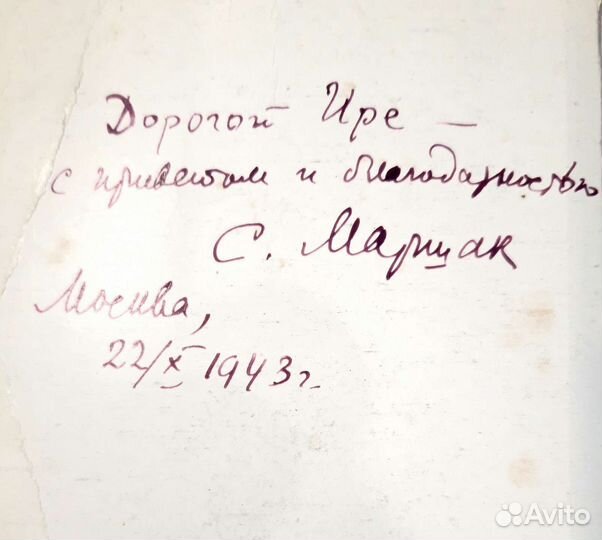 Дорогой Ире —
с приветом и благодарностью
С. Маршак
Москва,
22/X 1943 г.
Avito